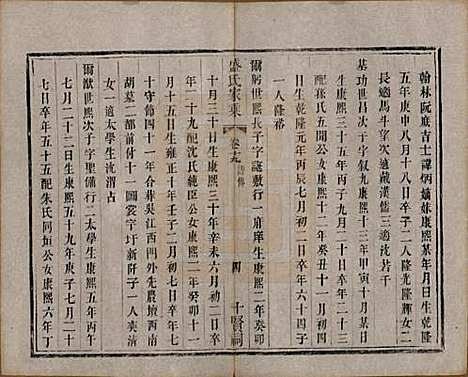 翰林阮庶吉士諱炳嫡妹康熙某年月日生乾隆
五年庚申八月十八日卒子二人隆光隆輝女二
長適馬斗望次適戴漢儒三適沈若千
基功世昌次子字叙九康熙十三年甲寅十月某日
生康熙五十二年癸巳九月二十日卒年四十
配孫氏五聞公女康熙十二年癸丑十一月初四
日生乾隆元年丙辰七月初二日卒年六十四子
一人隆裕
爾躬世熙長子字謎敷行一府庠生康熙二年癸卯
盛氏家乘
卷九
四
十賢祠
十月三十日生康熙三十年辛未六月初二日卒
年二十九配沈氏純臣公女康熙二年癸卯十一
月十五日生雍正十年壬子二月初七日卒年七
十守節四十一年合葬吳江西門外先農壇西南
胡墓二部前付十一圖裳字圩新阡子一人奕清
女一適太學生沈渭占
爾猷世熙次子字聖備行二太學生康熙五年丙午
七月初八日生康熙五十九年庚子七月二十
七日卒年五十五配朱氏同垣公女康熙六年丁